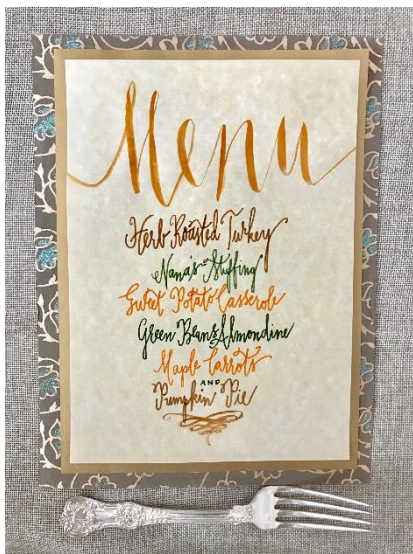 Menu
Herb Roasted Turkey
Nana's Stuffing
Sweet Potato Casserole
Green Beans Almondine
Maple Carrots
AND
Pumpkin Pie